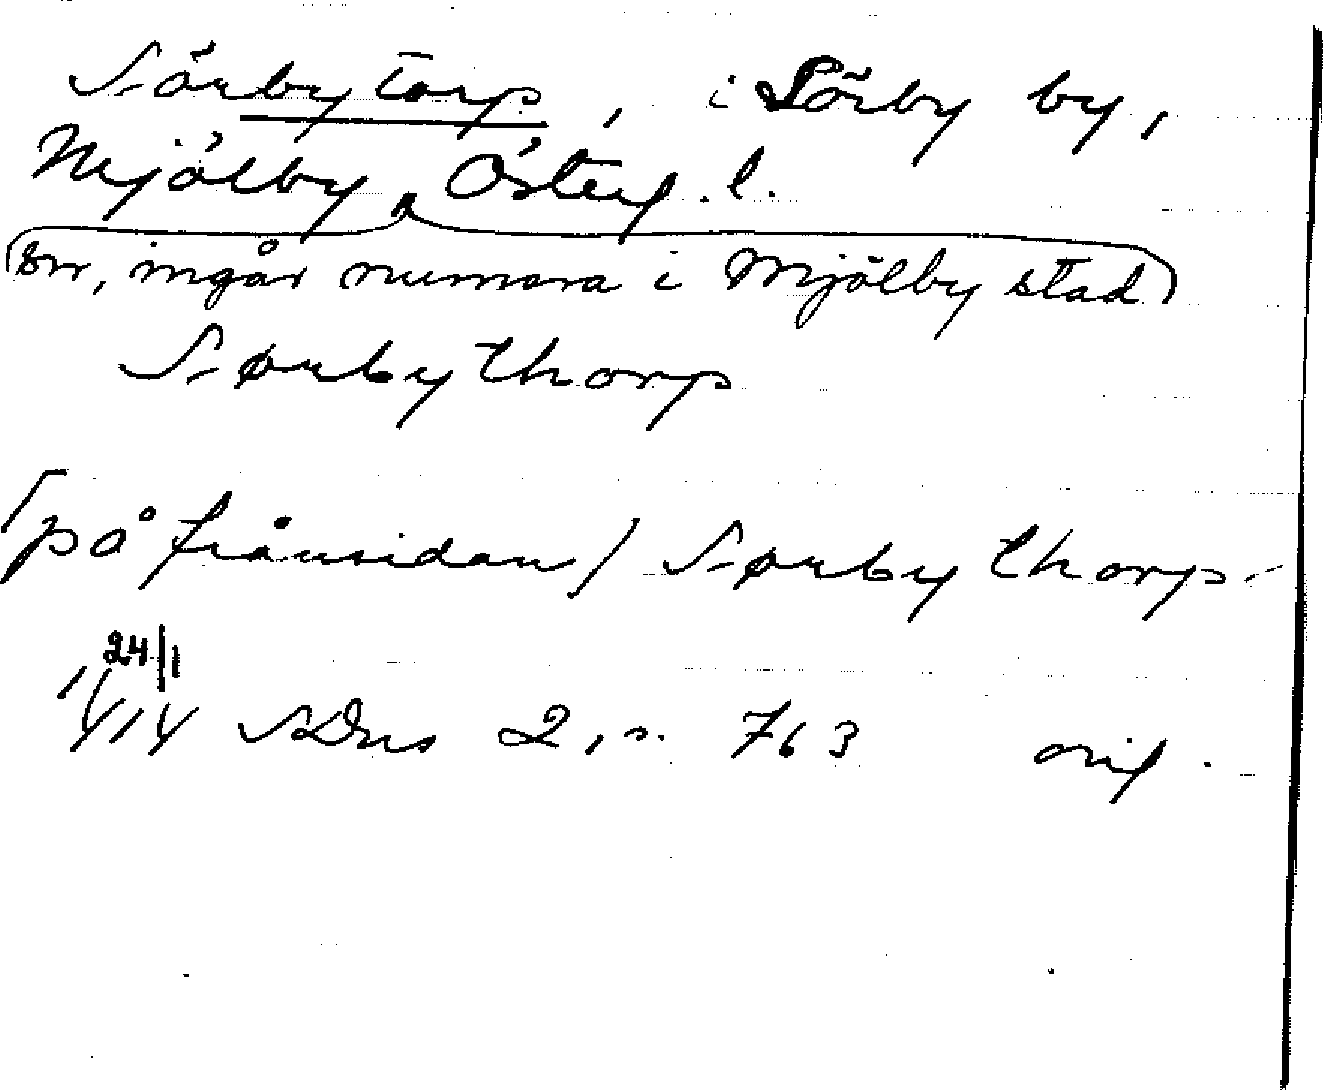 Sörbytorp, i Sörby by,
Mjölby, Österg. l.
(sn, ingår numera i Mjölby stad)
Sørbythorp
[på frånsidan] Sørbythorp
24/1
1414 SDns 2, s. 763 orig.